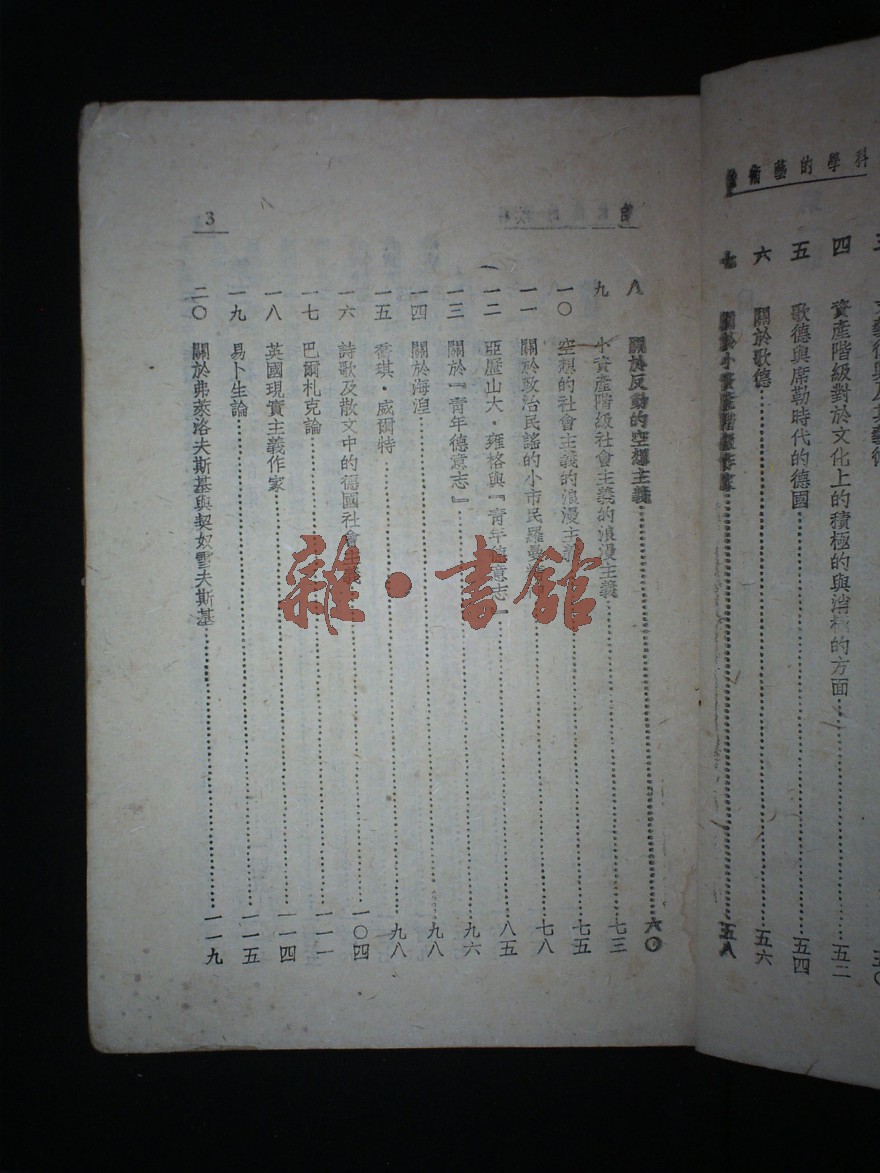 科學的藝術論
四 資產階級對於文化上的積極的與消極的方面 五二
五 歌德與席勒時代的德國 五四
六 關於歌德 五六
七 關於小資產階級作家 五八
3
八 關於反動的空想主義 六〇
九 小資產階級社會主義的浪漫主義 七三
一〇 空想的社會主義的浪漫主義 七五
一一 關於政治民謠的小市民羅曼 七八
一二 亞歷山大・雍格與『青年德意志』 八五
一三 關於『青年德意志』 九六
一四 關於海湼 九八
一五 喬琪・威爾特 九八
一六 詩歌及散文中的德國社會主義 一〇四
一七 巴爾札克論 一一一
一八 英國現實主義作家 一一四
一九 易卜生論 一一五
二〇 關於弗萊洛夫斯基與契奴雪夫斯基 一一九
雜・書館